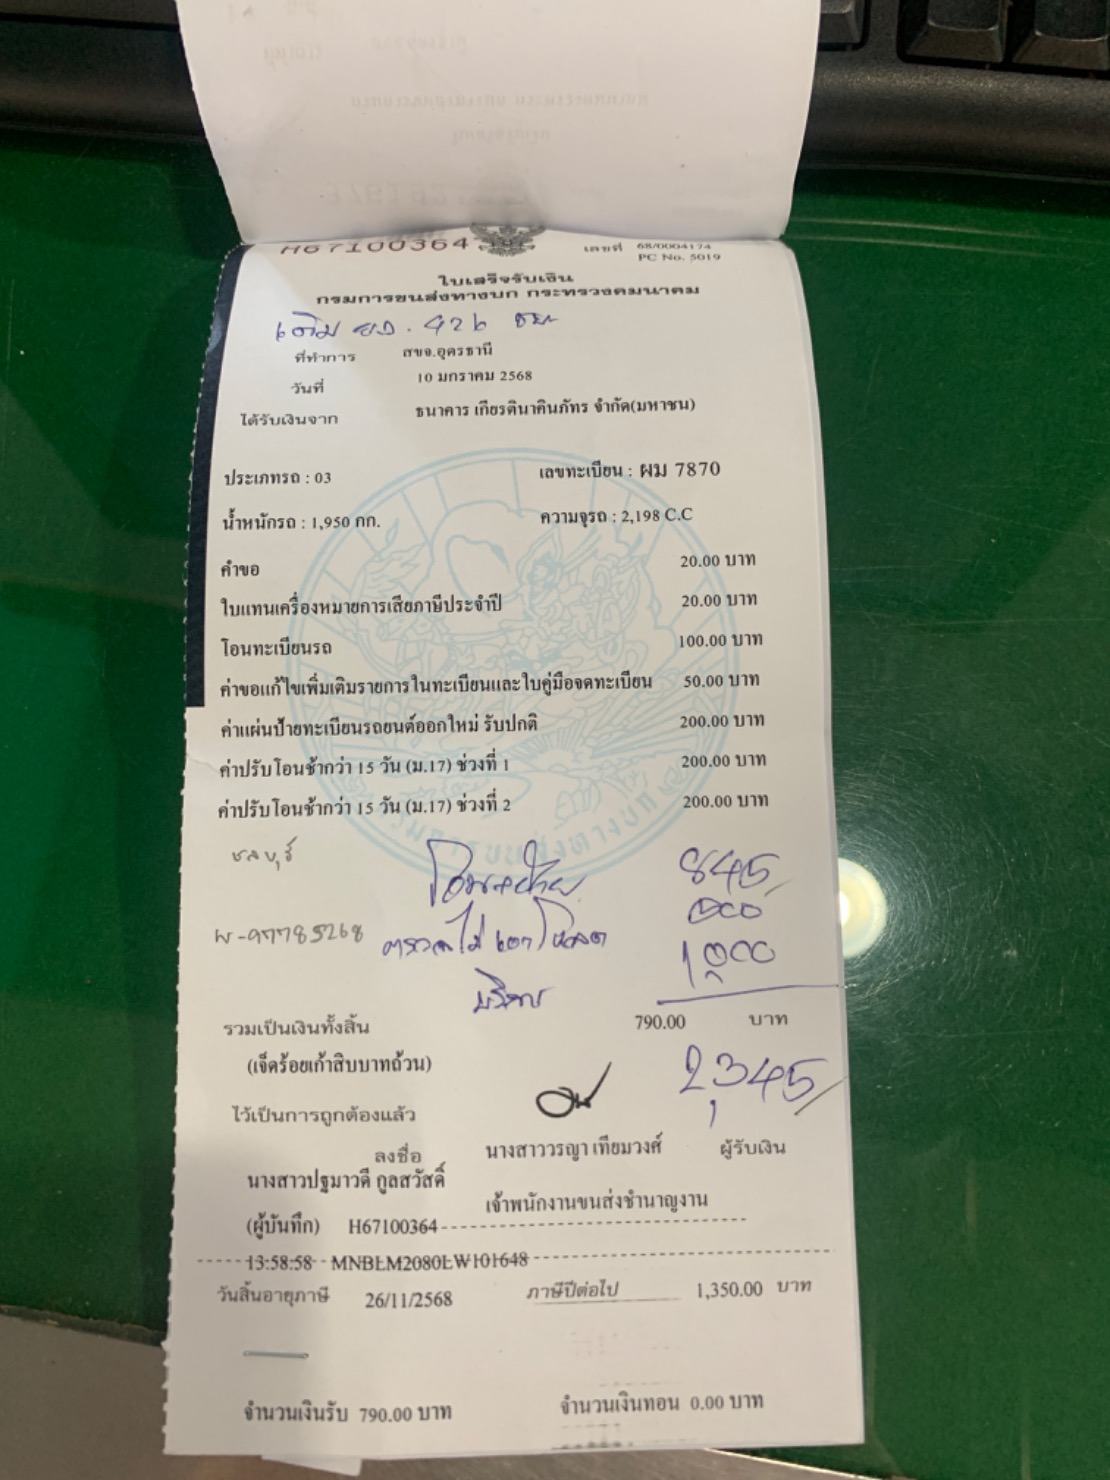 H67100364
เลขที่ 68/0004174
PC No. 5019
ใบเสร็จรับเงิน
กรมการขนส่งทางบก กระทรวงคมนาคม
เดิม
ที่ทำการ สขจ.อุดรธานี
วันที่ 10 มกราคม 2568
ได้รับเงินจาก ธนาคาร เกียรตินาคินภัทร จำกัด(มหาชน)
ประเภทรถ : 03 เลขทะเบียน : ผม 7870
น้ำหนักรถ : 1,950 กก. ความจุรถ : 2,198 C.C
คำขอ 20.00 บาท
ใบแทนเครื่องหมายการเสียภาษีประจำปี 20.00 บาท
โอนทะเบียนรถ 100.00 บาท
ค่าขอแก้ไขเพิ่มเติมรายการในทะเบียนและใบคู่มือจดทะเบียน 50.00 บาท
ค่าแผ่นป้ายทะเบียนรถยนต์ออกใหม่ รับปกติ 200.00 บาท
ค่าปรับโอนช้ากว่า 15 วัน (ม.17) ช่วงที่ 1 200.00 บาท
ค่าปรับโอนช้ากว่า 15 วัน (ม.17) ช่วงที่ 2 200.00 บาท
กรมการขนส่งทางบก
ชลบุรี 845
บริการ
รวมเป็นเงินทั้งสิ้น 790.00 บาท
(เจ็ดร้อยเก้าสิบบาทถ้วน) 2,345
ไว้เป็นการถูกต้องแล้ว
ลงชื่อ นางสาววรญา เทียมวงศ์ ผู้รับเงิน
นางสาวปฐมาวดี กูลสวัสดิ์
เจ้าพนักงานขนส่งชำนาญงาน
(ผู้บันทึก) H67100364
13:58:58 MNBLM2080LW101648
วันสิ้นอายุภาษี 26/11/2568 ภาษีปีต่อไป 1,350.00 บาท
จำนวนเงินรับ 790.00 บาท จำนวนเงินทอน 0.00 บาท